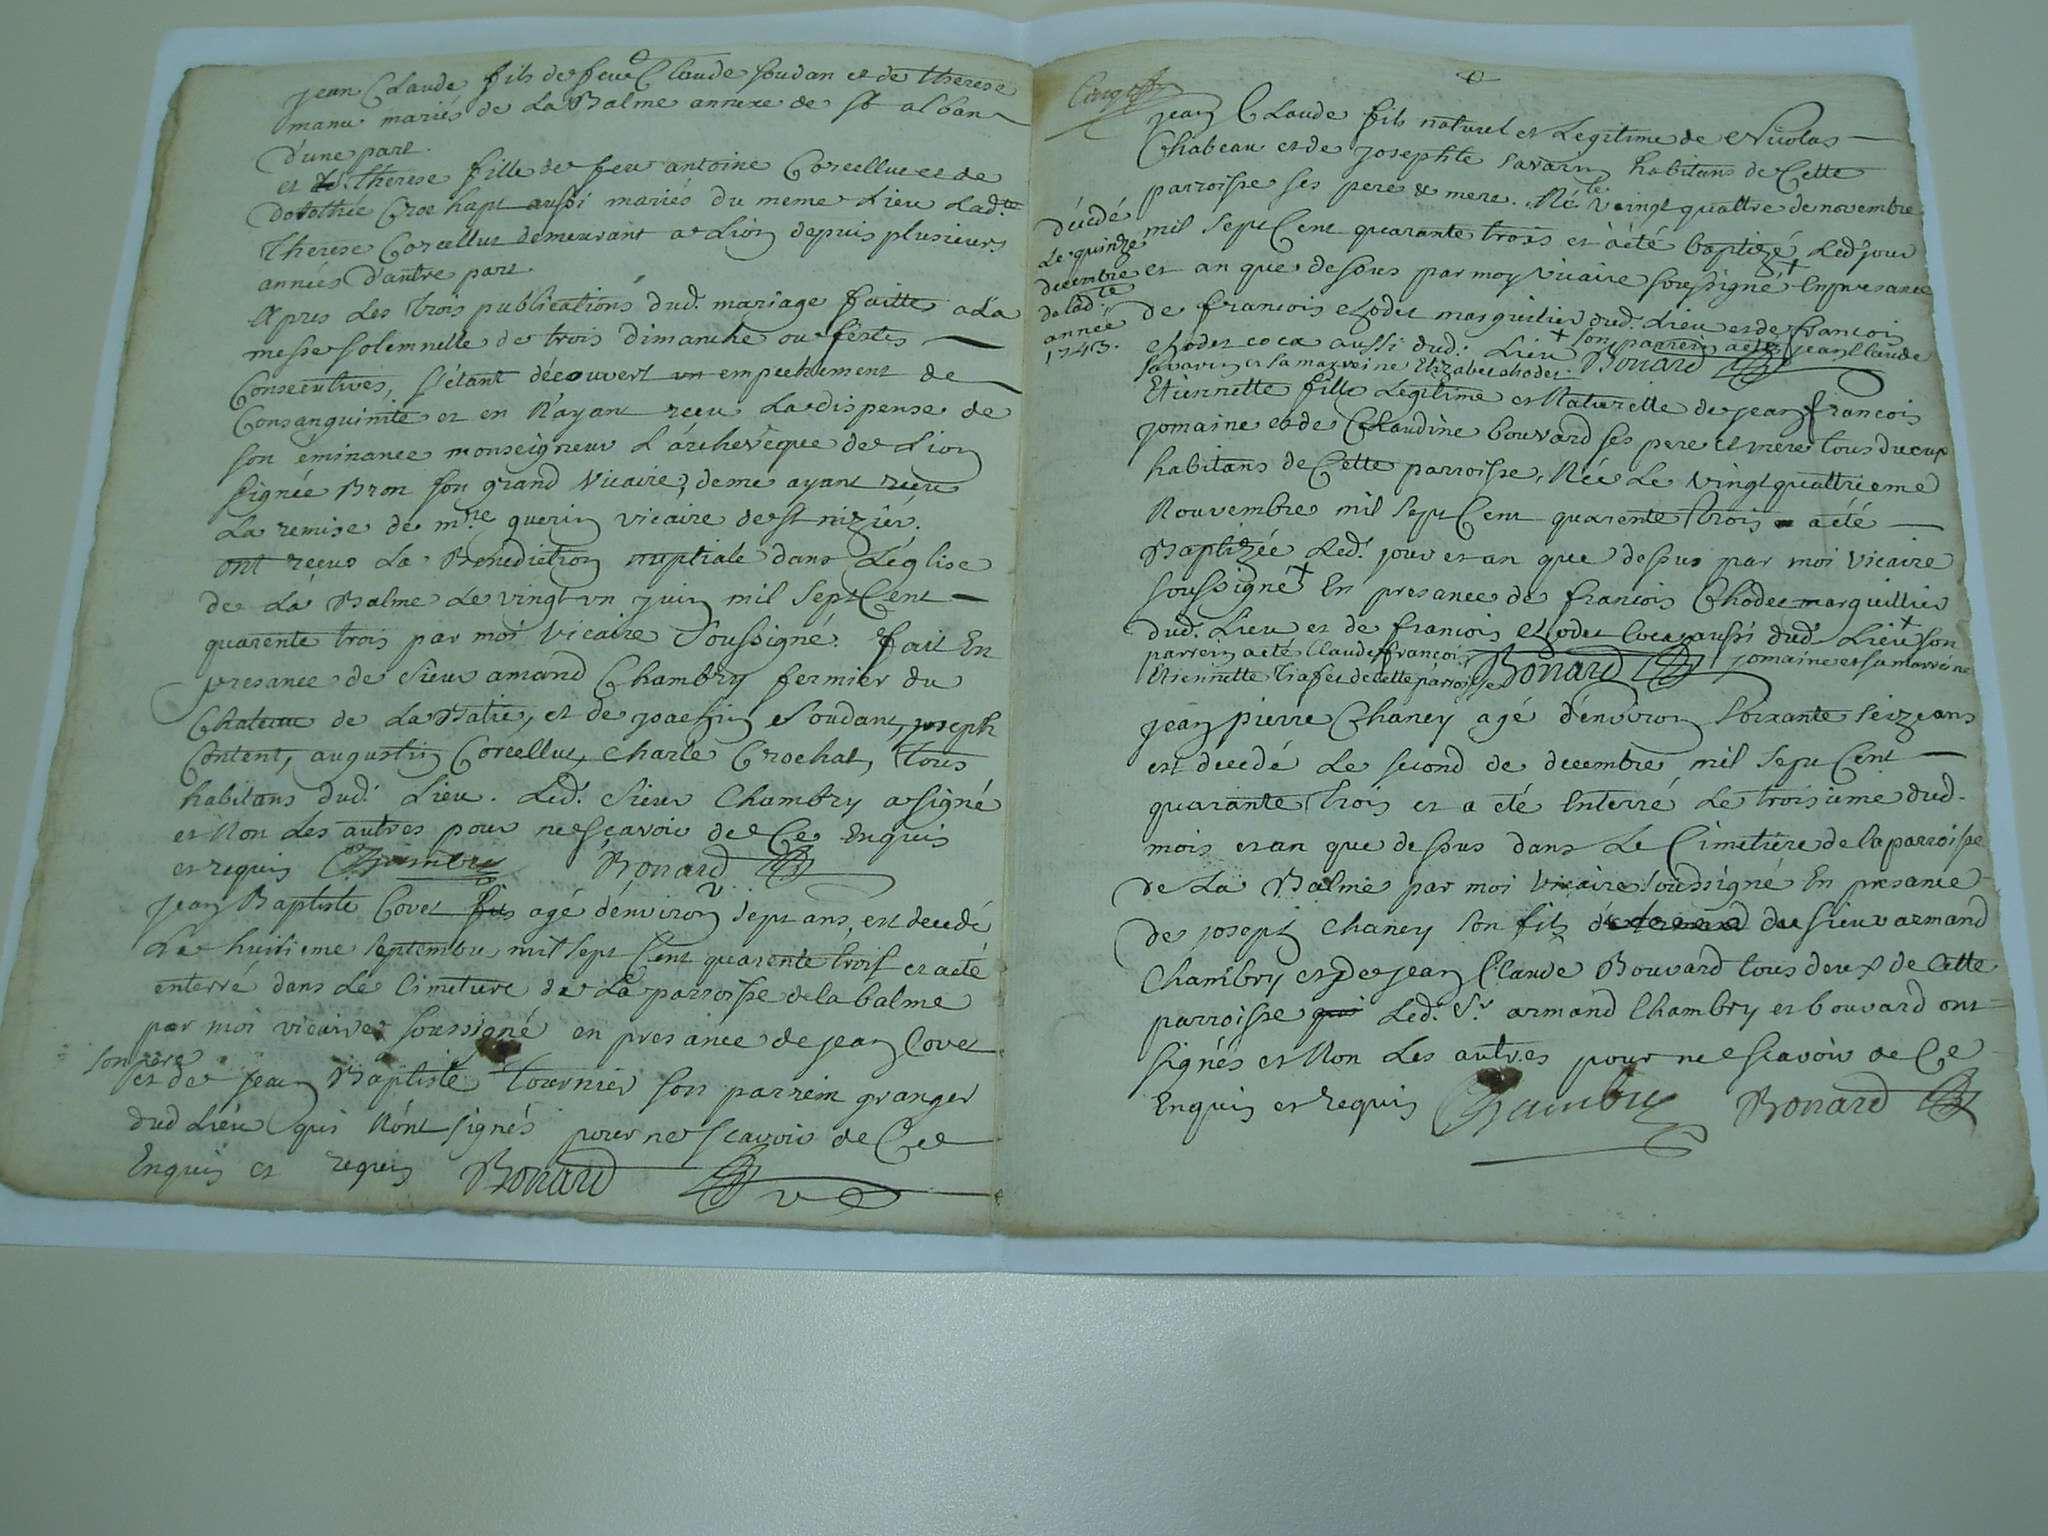 jean Claude fils de feu Claude soudan et de therese
manu mariés de La Balme annexe de st alban
d'une part.
et therese fille de feu antoine Corcellut et de
dorothée Crochapt aussi mariés du meme Lieu Ladte
therese Corcellut demeurant a Lion depuis plusieurs
années d'autre part.
Apres Les trois publications dud. mariage faittes a La
messe solemnelle de trois dimanche ou fêtes
Consecutives, s'étant découvert un empechement de
Consanguinité et en N'ayant receu La dispense de
son eminance monseigneur L'archevêque de Lion
signée Bron son grand Vicaire, de me ayant receu
La remise de mre guerin vicaire de st nizier.
ont reçus La Benediction nuptiale dans L'église
de La Balme Le vingt vn juin mil Sept Cent
quarente trois par moi Vicaire Soussigné. fait En
presance de Sieur amand Chambry fermier du
Chateau de La Batie, et de joachin Soudant, joseph
Content, augustin Corcellut, Charle Crochat, tous
habitans dud. Lieu. Led. Sieur Chambry a signé
et Non Les autres pour ne sçavoir de Ce Enquis
et requis Chambry Bonard
Jean Baptiste Covet agé d'environ sept ans, est decedé
Le huitieme septembre mil sept Cent quarente trois et a eté
enterré dans Le Cimetiere de La parroisse de la balme
par moi vicaire soussigné en presance de jean Covet
son père
et de Jean Baptiste tournier son parrein granger
dud Lieu qui N'ont signés pour ne sçavoir de Ce
Enquis et requis Bonard
jean Claude fils naturel et Legitime de Nicolas
Chabeau et de josephte savarin habitans de Cette
parroisse ses pere & mere. Né le veingt quattre de novembre
mil Sept Cent quarante trois et a été baptizé Led. jour
et an que dessus par moy Vicaire soussigné + En presance
de francois Chodet marguilier dud. Lieu et de francois
Chodet coca aussi dud. Lieu + son parrein a eté jean Claude
savarin et sa marreine Elizabet chodet. Bonard
décédé
Le quinze
decembre
de ladte
année
1743.
Etiennette fille Legitime et Naturelle de jean françois
jomaine et de Claudine bouvard ses pere et mere tous deux
habitans de Cette parroisse, Née Le vingt quattrieme
Nouvembre mil Sept Cent quarente trois a été
Baptizée Led. jour et an que dessus par moi Vicaire
soussigné + En presance de francois Chodet marguillier
dud. Lieu et de francois Chodet Coca aussi dud. Lieu + son
parrein a eté Claude françois jomaine et sa marreine
Etiennette de cette parroisse Bonard
jean pierre Chaney agé d'environ soixante seize ans
est decedé Le second de decembre mil Sept Cent
quarante trois et a eté Enterré Le troisieme dud.
mois et an que dessus dans Le Cimetiere de la parroisse
de La Balme par moi Vicaire soussigné En presance
de josept Chaney son fils du sieur armand
Chambry et de jean Claude Bouvard tous deux de Cette
parroisse Led. Sr. armand Chambry et bouvard ont
signés et Non Les autres pour ne sçavoir de Ce
Enquis et requis Chambry Bonard